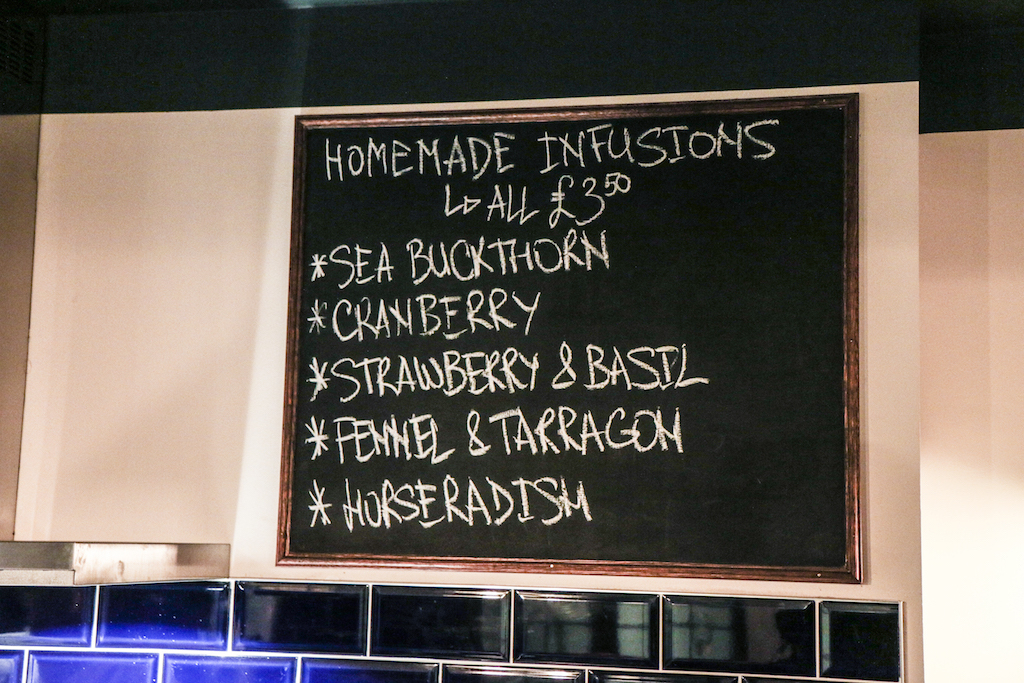 HOMEMADE INFUSIONS
↳ ALL £3.50
*SEA BUCKTHORN
*CRANBERRY
*STRAWBERRY & BASIL
*FENNEL & TARRAGON
*HORSERADISH